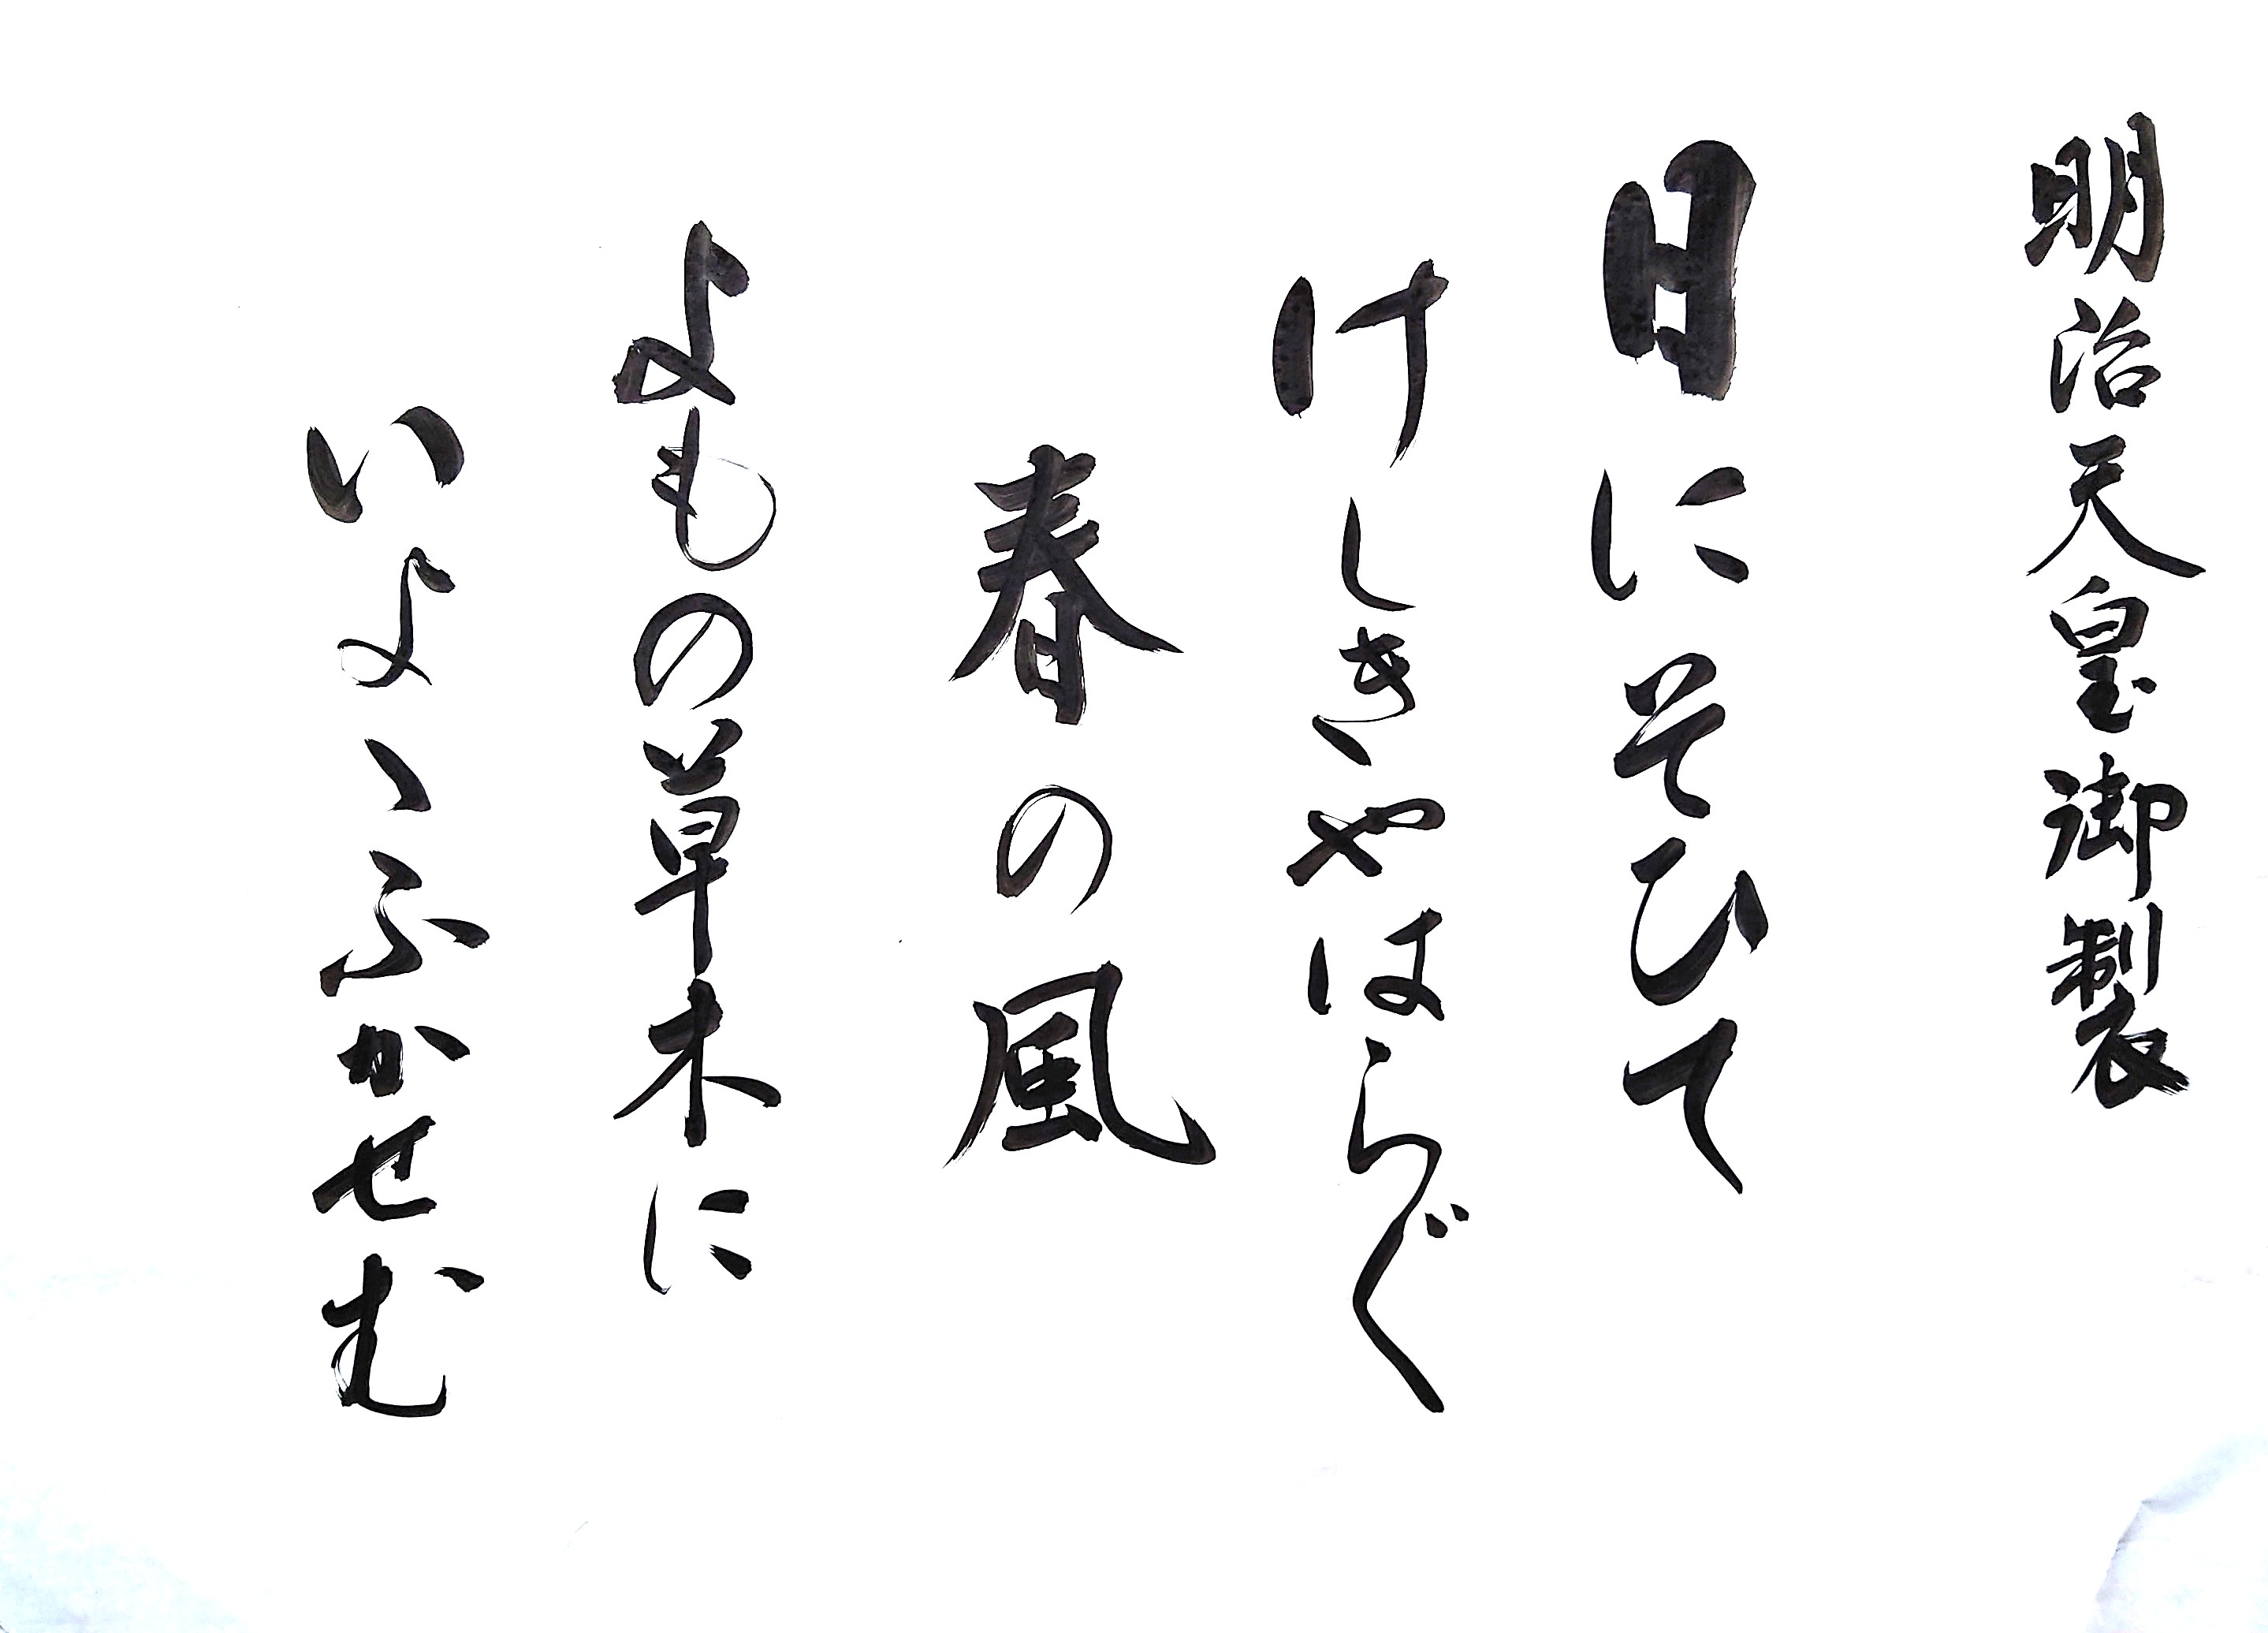 明治天皇御製
日にそひて
けしきやはらぐ
春の風
よもの草木に
いよゝふかせむ